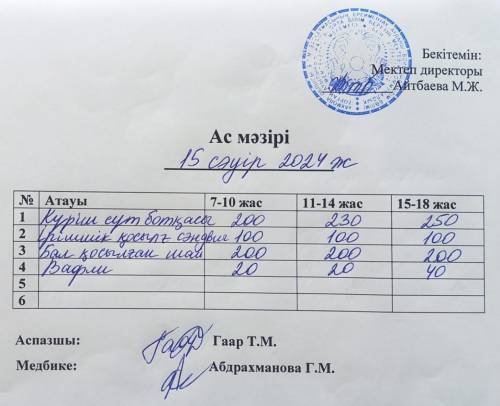 Бекітемін:
Мектеп директоры
Айтбаева М.Ж.
Ас мәзірі
15 сәуір 2024 ж
№ Атауы 7-10 жас 11-14 жас 15-18 жас
1 Күріш сүт ботқасы 200 230 250
2 Ірімшік қосылғ сэндвич 100 100 100
3 Бал қосылған шай 200 200 200
4 Вафли 20 20 40
5
6
Аспазшы: Гаар Т.М.
Медбике: Абдрахманова Г.М.